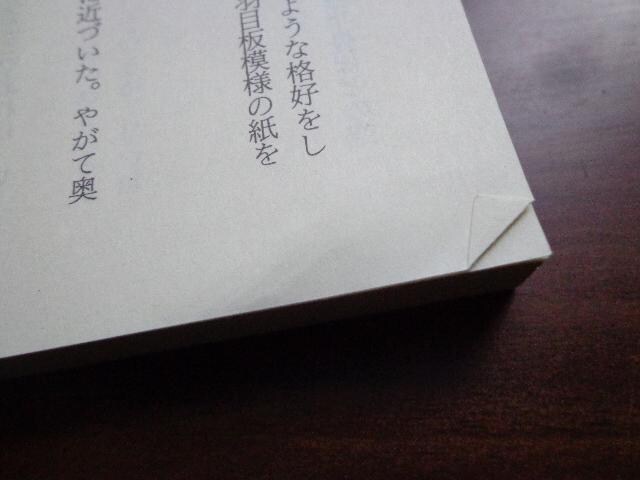 ような格好をし
羽目板模様の紙を
に近づいた。やがて奥